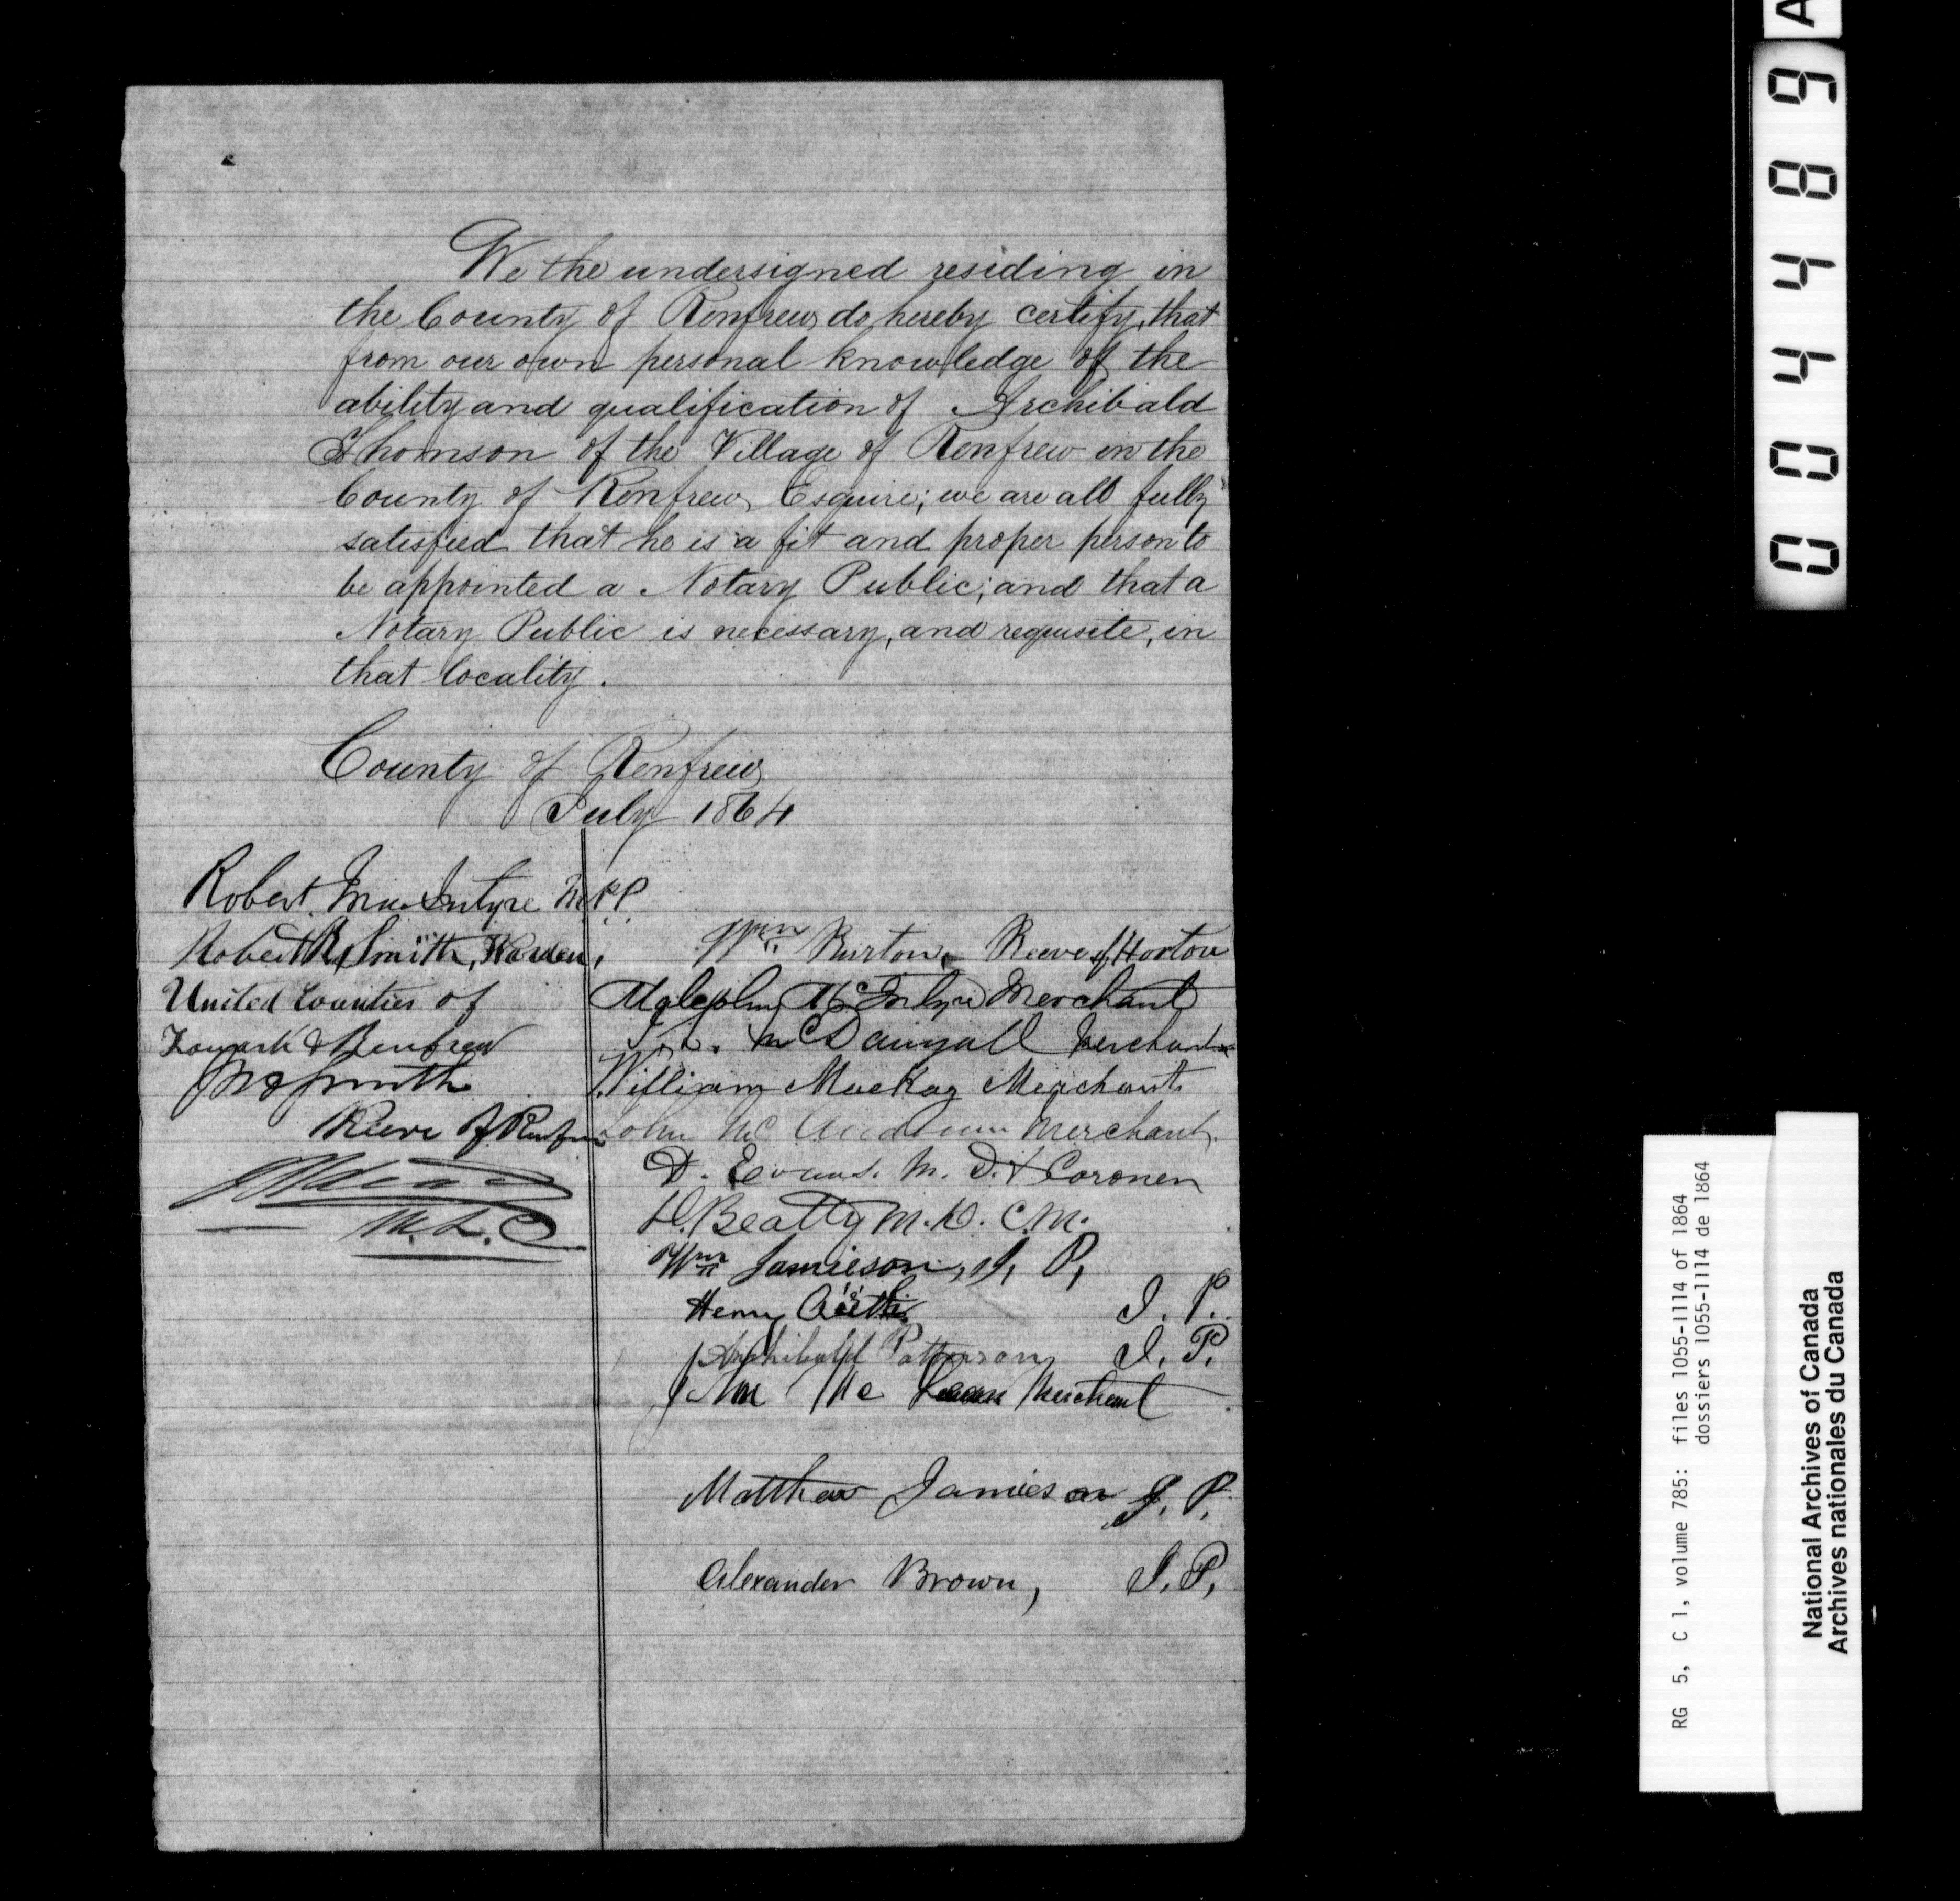 We the undersigned residing in
the County of Renfrew do hereby certify, that
from our own personal knowledge of the
ability and qualification of Archibald
Thomson of the Village of Renfrew in the
County of Renfrew, Esquire; we are all fully
satisfied that he is a fit and proper person to
be appointed a Notary Public; and that a
Notary Public is necessary, and requisite, in
that locality.
County of Renfrew
July 1864
Robert MacIntyre M.P.P.
Robert Smith, Warden,
United Counties of
Lanark & Renfrew
Smith
Reeve of Renfrew
M.L.C
Wm Burton, Reeve of Horton
Malcolm McIntyre Merchant
McDougall Merchant
William MacKay Merchant
John Mc Merchant.
D. Evans. M. D. & Coroner
D. Beatty M.D. C.M.
Wm Jamieson, J. P,
Henry J. P.
Archibald Patterson J. P.
John Mc Lean Merchant
Matthew Jamieson J. P.
Alexander Brown, J. P,
A
004489
RG 5, C 1, volume 785: files 1055-1114 of 1864
dossiers 1055-1114 de 1864
National Archives of Canada
Archives nationales du Canada